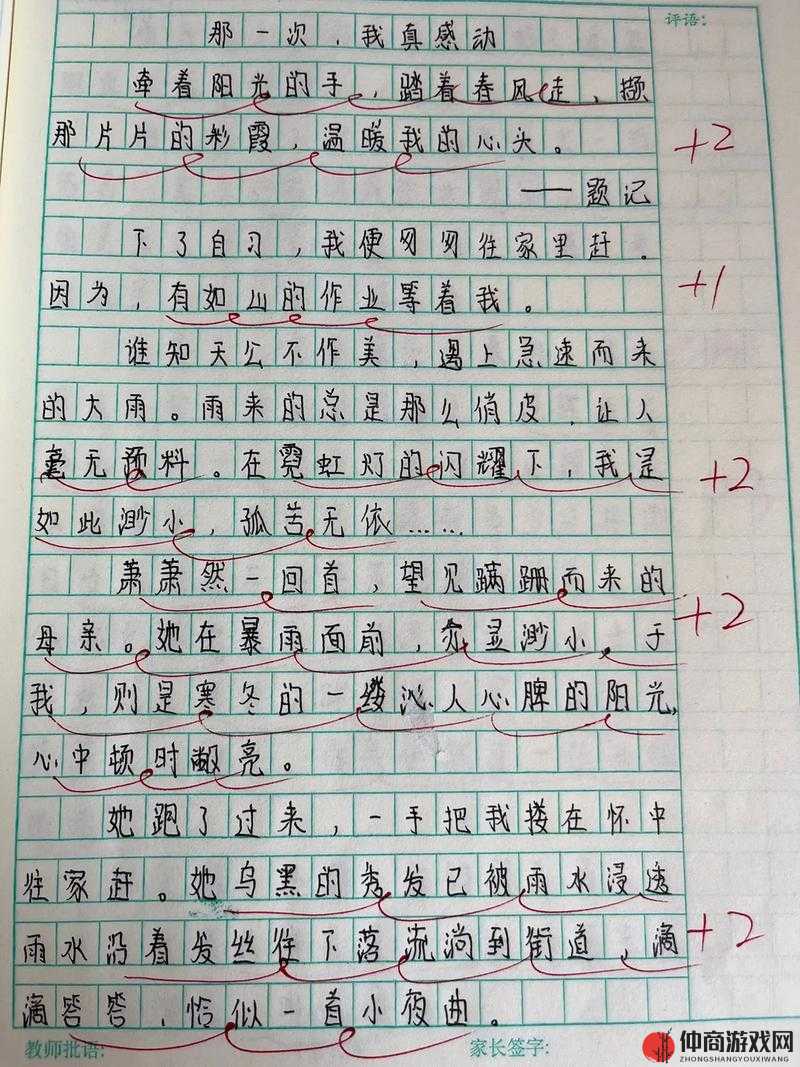 评语:
那一次,我真感动
牵着阳光的手,踏着春风走,撷
那片片的彩霞,温暖我的心头。
+2
——题记
下了自习,我便匆匆往家里赶。
因为,有如山的作业等着我。
+1
谁知天公不作美,遇上急速而来
的大雨。雨来的总是那么俏皮,让人
毫无预料。在霓虹灯的闪耀下,我是
+2
如此渺小,孤苦无依……
萧萧然一回首,望见蹒跚而来的
+2
母亲。她在暴雨面前,亦显渺小。于
我,则是寒冬的一缕沁人心脾的阳光,
心中顿时敞亮。
她跑了过来,一手把我搂在怀中
往家赶。她乌黑的秀发已被雨水浸透
雨水沿着发丝往下落流淌到街道,滴
+2
滴答答,恰似一首小夜曲。
教师批语: 家长签字:
仲商游戏网
ZHONGSHANGYOUXIWANG